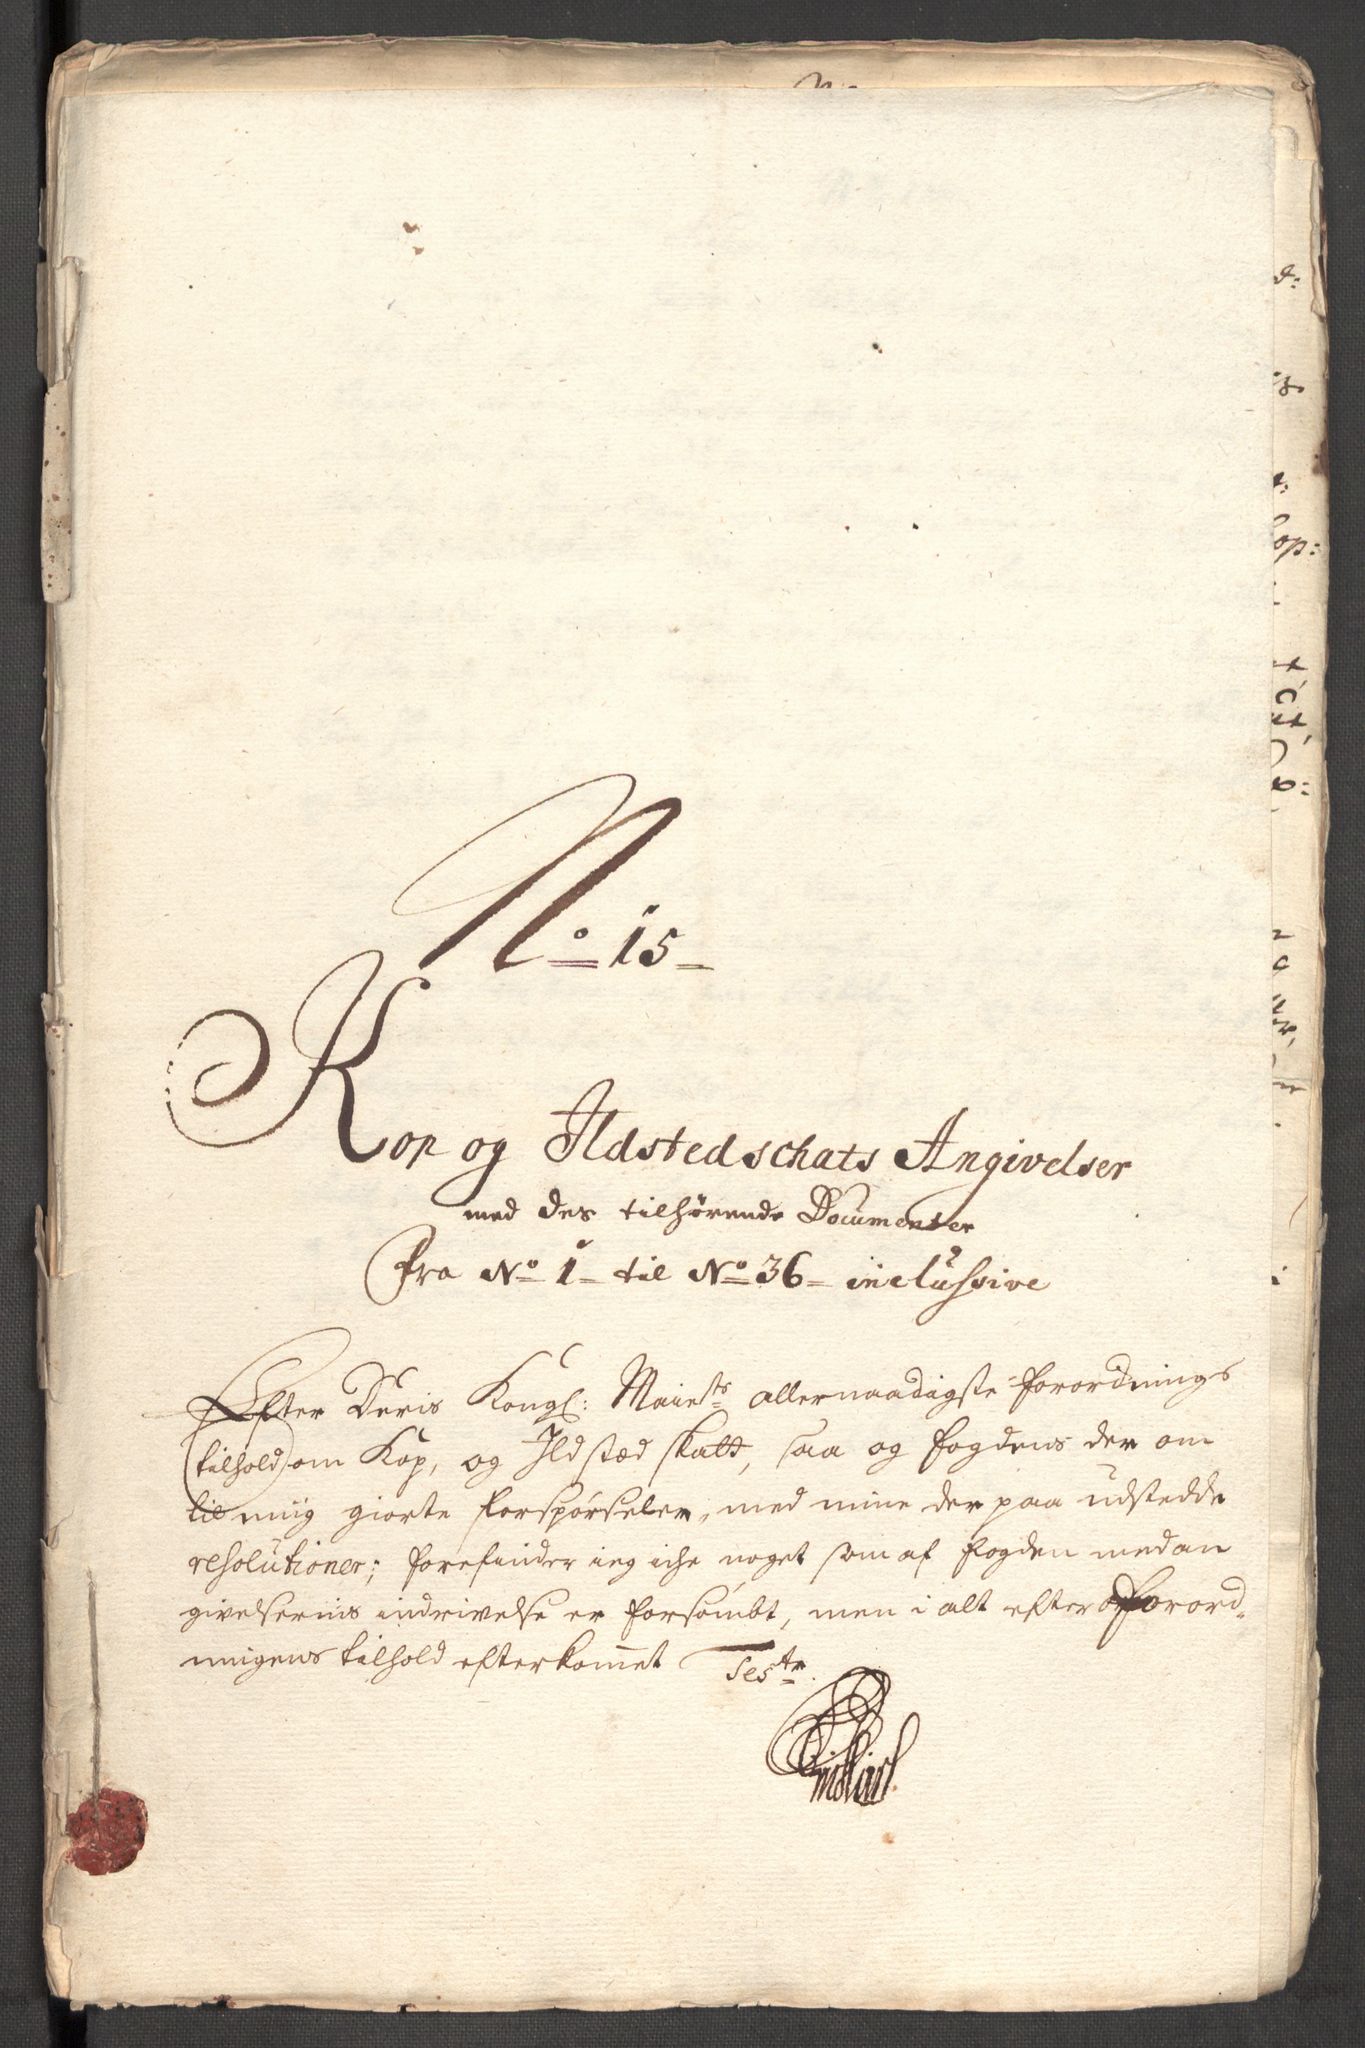 No 15
Kop og Ildstedschats Angivelser
med des tilhörende Documenter
Fra No 1 til No 36 inclussive
Efter Deris Kongl: Maiests allernaadigste forordnings
tilhold om Kop, og Ildstæd skatt, saa og fogdens der om
til miig giorte forspörseler, med mine der paa udstedde
resolutioner; forefinder ieg iche noget som af fogden med an
givelserns indrivelse er forsömbt, men i alt efter forord-
ningens tilhold efterkommet Teste